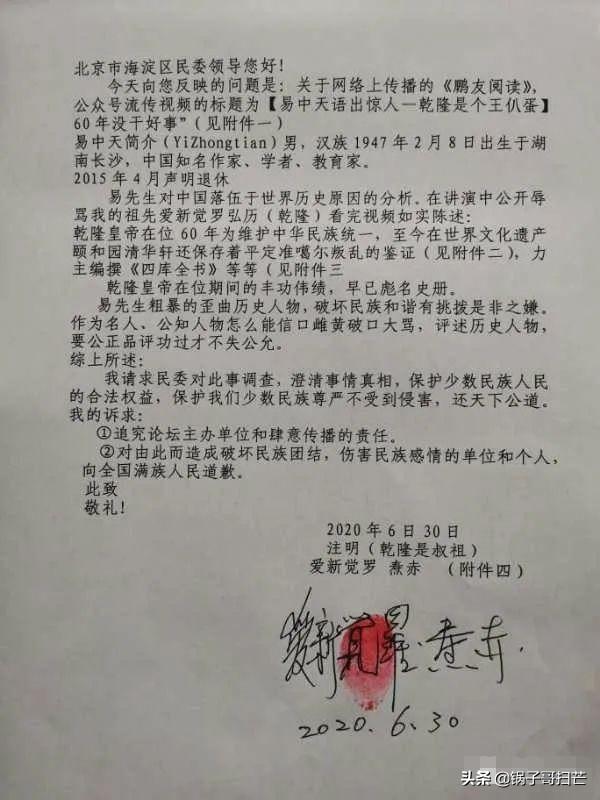 北京市海淀区民委领导您好!
今天向您反映的问题是: 关于网络上传播的《鹏友阅读》,
公众号流传视频的标题为【易中天语出惊人—乾隆是个王仈蛋】
60年没干好事”(见附件一)
易中天简介(YiZhongtian)男, 汉族 1947 年 2 月 8 日出生于湖
南长沙, 中国知名作家、学者、教育家。
2015 年 4 月声明退休
易先生对中国落伍于世界历史原因的分析。在讲演中公开辱
骂我的祖先爱新觉罗弘历(乾隆)看完视频如实陈述:
乾隆皇帝在位 60 年为维护中华民族统一, 至今在世界文化遗产
颐和园清华轩还保存着平定准噶尔叛乱的鉴证(见附件二), 力
主编撰《四库全书》等等(见附件三
乾隆皇帝在位期间的丰功伟绩, 早已彪名史册。
易先生粗暴的歪曲历史人物, 破坏民族和谐有挑拨是非之嫌。
作为名人、公知人物怎么能信口雌黄破口大骂, 评述历史人物,
要公正品评功过才不失公允。
综上所述:
我请求民委对此事调查, 澄清事情真相, 保护少数民族人民
的合法权益, 保护我们少数民族尊严不受到侵害, 还天下公道。
我的诉求:
①追究论坛主办单位和肆意传播的责任。
②对由此而造成破坏民族团结, 伤害民族感情的单位和个人,
向全国满族人民道歉。
此致
敬礼!
2020 年 6 月 30 日
注明(乾隆是叔祖)
爱新觉罗 焘赤 (附件四)
爱新觉罗·焘赤.
2020.6.30
头条 @锅子哥扫芒